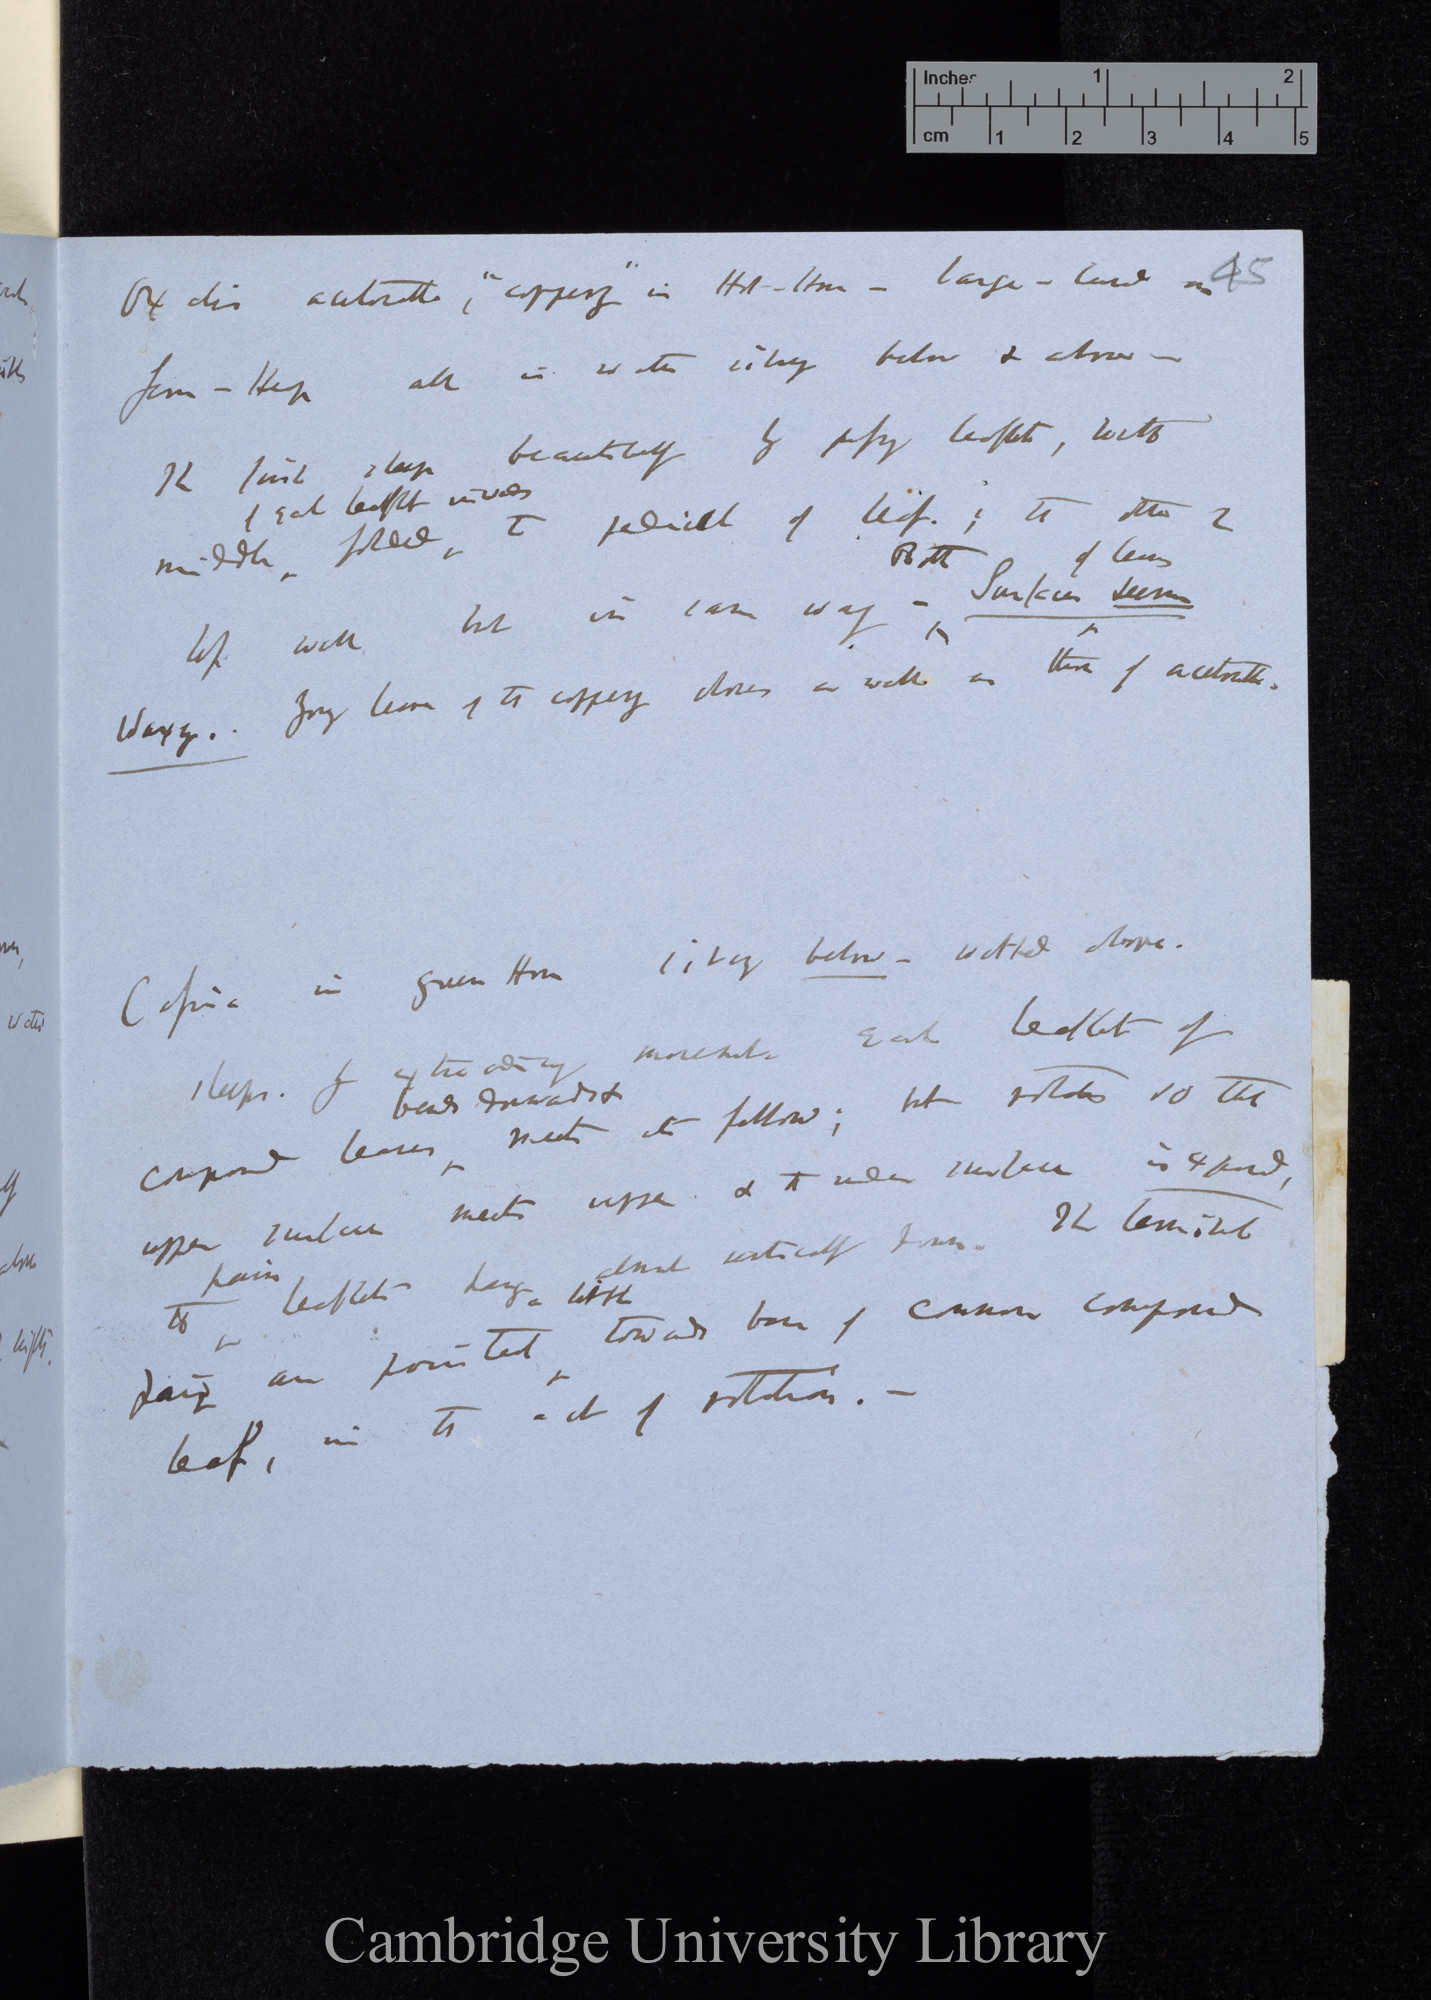 Inches 1 2
cm 1 2 3 4 5
45
Oxalis acetosella, "coppery" in Hot-House – large-leaved in
fern – Keep all in water silvery below & above –
The first sleeps beautifully by leaflets, with
of each leaflet inwards
middle, folded, to pedicell of leaf.; the other 2
Both of leaves
less well but in same way – Surfaces seem
waxy.. Young leaves of the coppery closes as well as those of acetosella.
Cassia in green House silvery below – wetted above.
sleeps. by extraordinary movement. Each leaflet of
bends downwards &
compound leaves, meets its fellow; but rotates so that
upper surface meets upper & the under surface is exposed,
pairs
the leaflets hang almost vertically down. The terminal
a little
pair are pointed towards base of common compound
leaf, in the act of rotation. –
Cambridge University Library